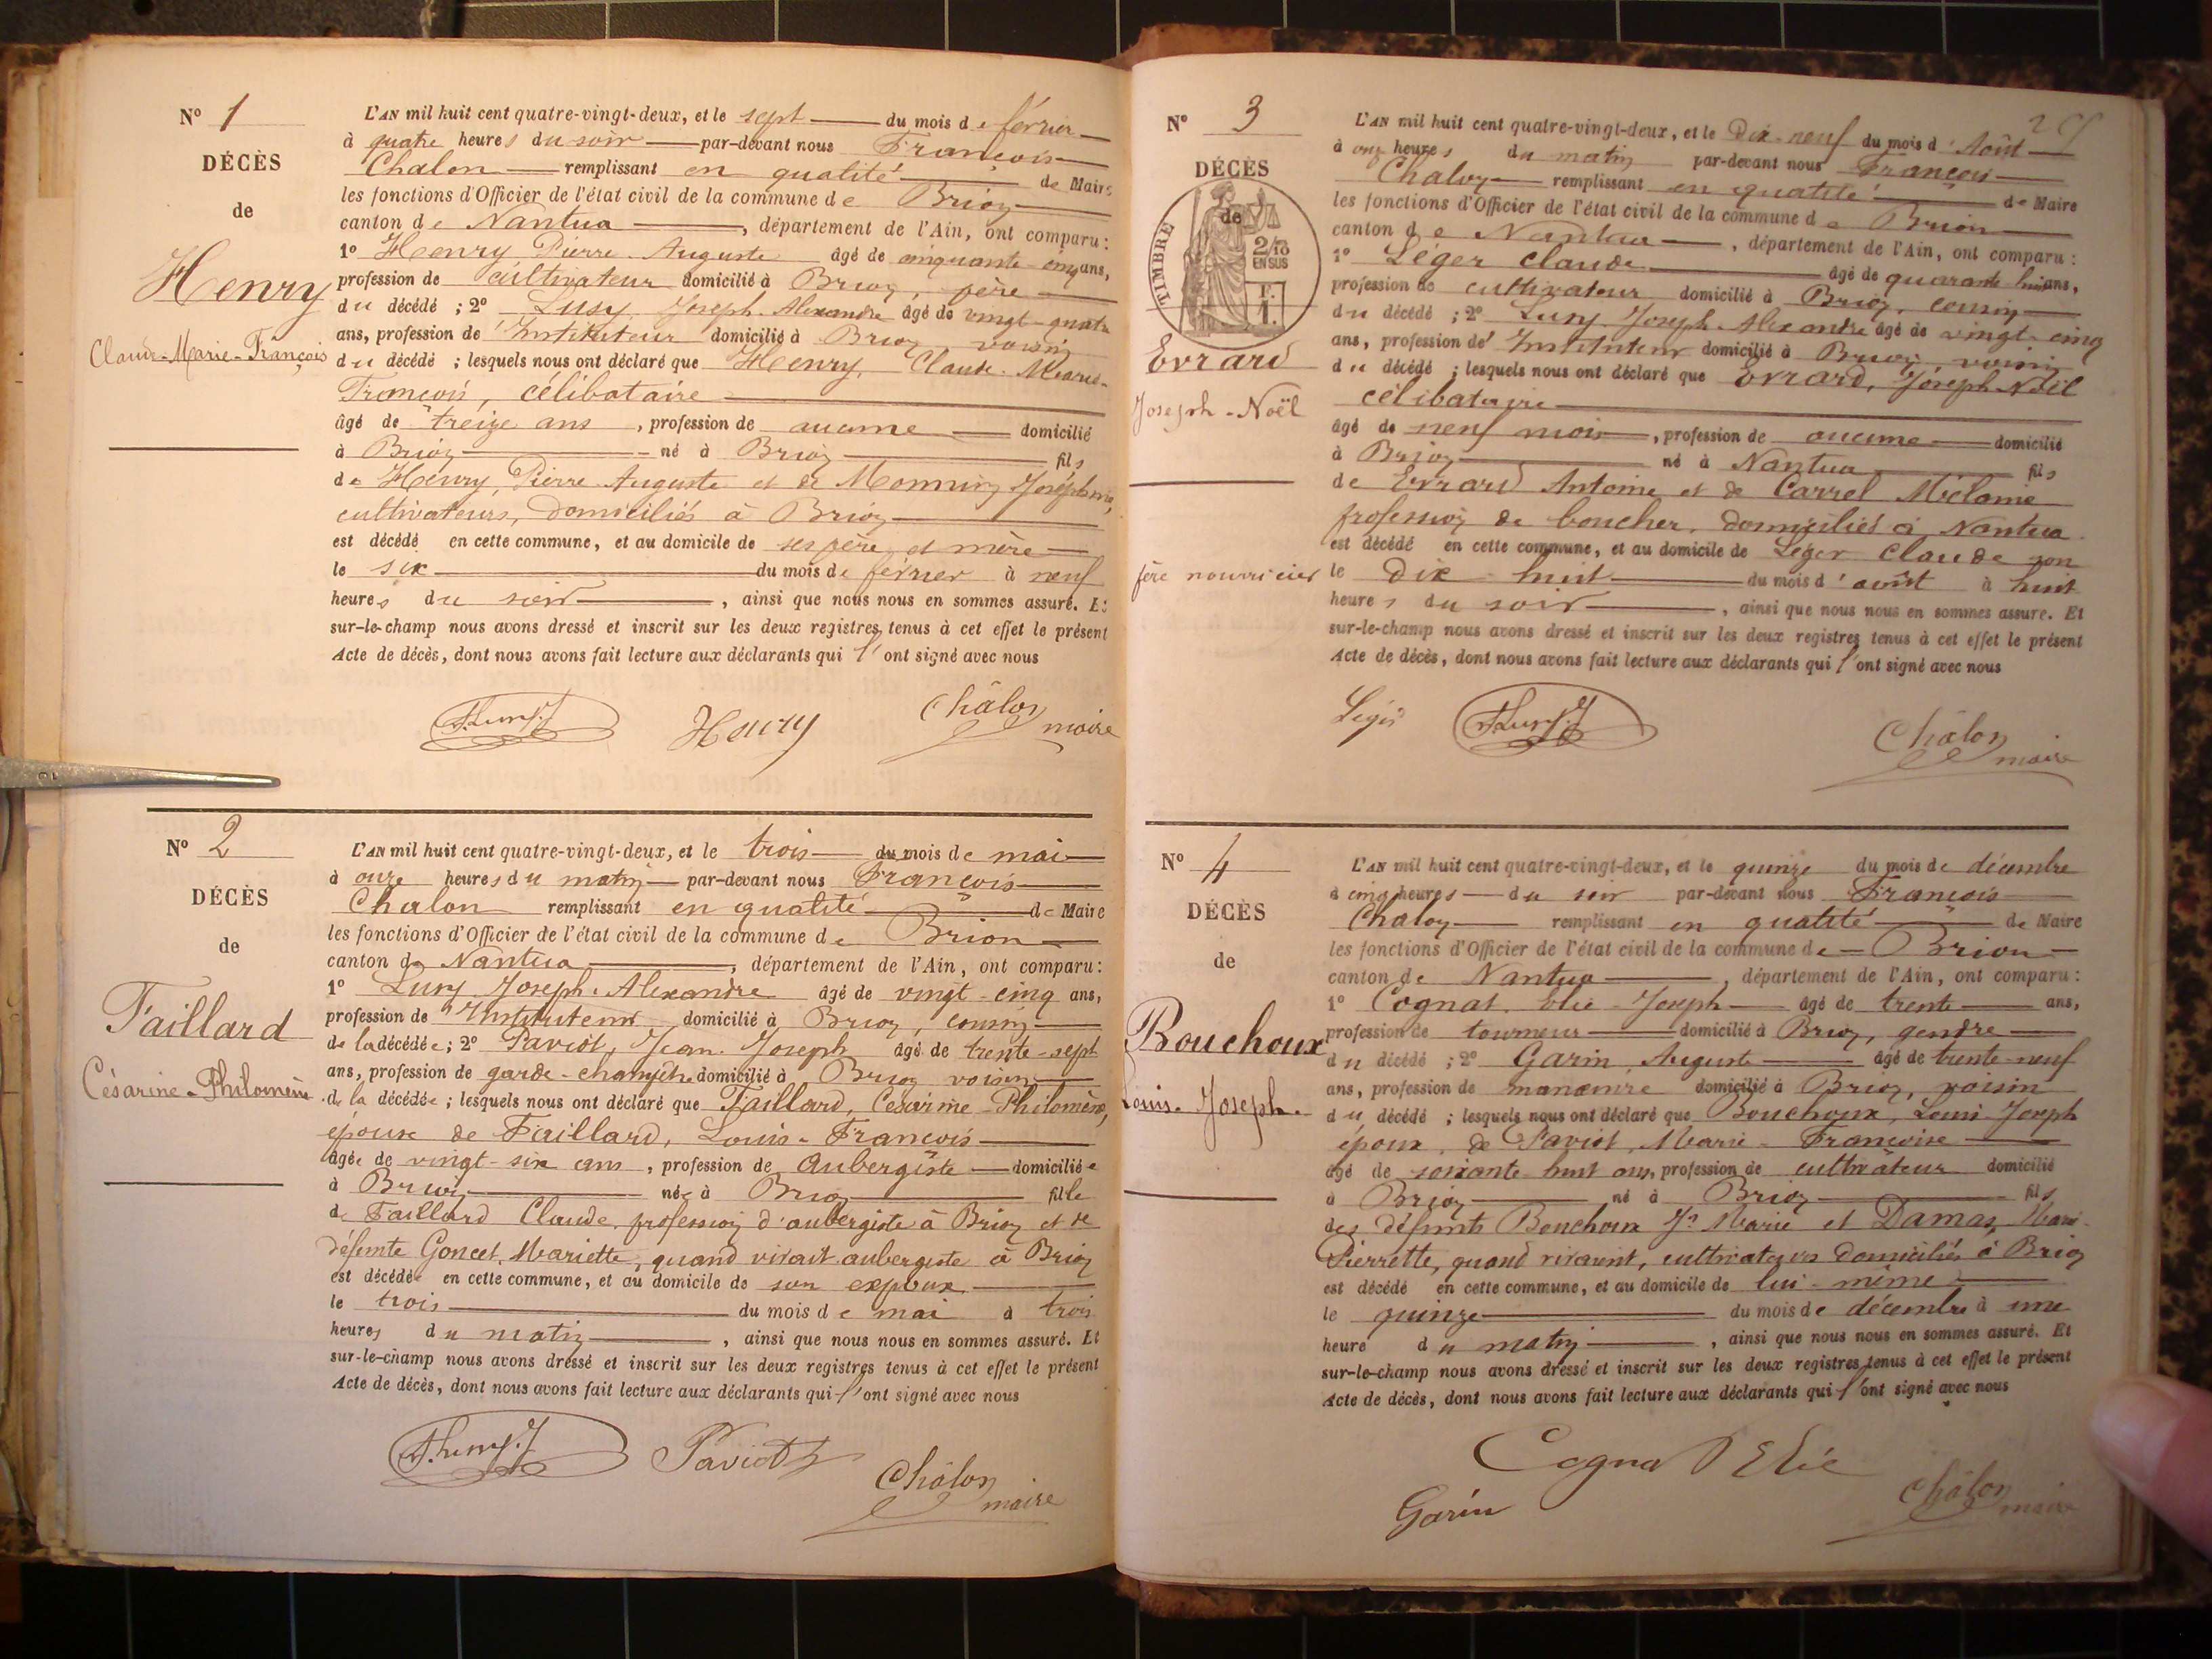 N° 1
DÉCÈS
de
Henry
Claude-Marie-François
L'AN mil huit cent quatre-vingt-deux, et le sept du mois de février
à quatre heures du soir par-devant nous François
Chalon remplissant en qualité de Maire
les fonctions d'Officier de l'état civil de la commune de Brion
canton de Nantua, département de l'Ain, ont comparu :
1° Henry, Pierre Auguste âgé de cinquante-cinq ans,
profession de cultivateur domicilié à Brion, père
du décédé ; 2° Lusy, Joseph-Alexandre âgé de vingt-quatre
ans, profession de Instituteur domicilié à Brion, voisin
du décédé ; lesquels nous ont déclaré que Henry, Claude-Marie-
François, célibataire
âgé de treize ans, profession de aucune domicilié
à Brion né à Brion fils
de Henry, Pierre Auguste et de Monnin Joséphine,
cultivateurs, domiciliés à Brion
est décédé en cette commune, et au domicile de ses père et mère
le six du mois de février à neuf
heures du soir, ainsi que nous nous en sommes assuré. Et
sur-le-champ nous avons dressé et inscrit sur les deux registres tenus à cet effet le présent
Acte de décès, dont nous avons fait lecture aux déclarants qui l'ont signé avec nous
Henry
Châlon
maire
N° 2
DÉCÈS
de
Taillard
Césarine-Philomène
L'AN mil huit cent quatre-vingt-deux, et le trois du mois de mai
à onze heures du matin par-devant nous François
Chalon remplissant en qualité de Maire
les fonctions d'Officier de l'état civil de la commune de Brion
canton de Nantua, département de l'Ain, ont comparu :
1° Lusy Joseph-Alexandre âgé de vingt-cinq ans,
profession de Instituteur domicilié à Brion, cousin
de la décédée ; 2° Paviot, Jean-Joseph âgé de trente-sept
ans, profession de garde-champêtre domicilié à Brion voisin
de la décédée ; lesquels nous ont déclaré que Taillard, Césarine-Philomène,
épouse de Taillard, Louis-François
âgée de vingt-six ans, profession de aubergiste domiciliée
à Brion née à Brion fille
de Taillard Claude, profession d'aubergiste à Brion et de
défunte Goncet, Mariette, quand vivait aubergiste à Brion
est décédée en cette commune, et au domicile de son expoux
le trois du mois de mai à trois
heures du matin, ainsi que nous nous en sommes assuré. Et
sur-le-champ nous avons dressé et inscrit sur les deux registres tenus à cet effet le présent
Acte de décès, dont nous avons fait lecture aux déclarants qui l'ont signé avec nous
Paviot
Châlon
maire
N° 3
DÉCÈS
de
TIMBRE
2/10
EN SUS
Evrard
Joseph-Noël
L'AN mil huit cent quatre-vingt-deux, et le dix-neuf du mois d'Août
à onze heures du matin par-devant nous François
Chalon remplissant en qualité de Maire
les fonctions d'Officier de l'état civil de la commune de Brion
canton de Nantua, département de l'Ain, ont comparu :
1° Léger Claude âgé de quarante huit ans,
profession de cultivateur domicilié à Brion, cousin
du décédé ; 2° Lusy, Joseph-Alexandre âgé de vingt-cinq
ans, profession de Instituteur domicilié à Brion, voisin
du décédé ; lesquels nous ont déclaré que Evrard, Joseph-Noël
célibataire
âgé de neuf mois, profession de aucune domicilié
à Brion né à Nantua fils
de Evrard Antoine et de Carrel Mélanie
profession de boucher, domiciliés à Nantua
est décédé en cette commune, et au domicile de Léger Claude son
père nourricier le dix-huit du mois d'août à huit
heures du soir, ainsi que nous nous en sommes assuré. Et
sur-le-champ nous avons dressé et inscrit sur les deux registres tenus à cet effet le présent
Acte de décès, dont nous avons fait lecture aux déclarants qui l'ont signé avec nous
Châlon
maire
N° 4
DÉCÈS
de
Bouchoux
Louis-Joseph
L'AN mil huit cent quatre-vingt-deux, et le quinze du mois de décembre
à cinq heures du soir par-devant nous François
Chalon remplissant en qualité de Maire
les fonctions d'Officier de l'état civil de la commune de Brion
canton de Nantua, département de l'Ain, ont comparu :
1° Cognat Joseph âgé de trente ans,
profession de tourneur domicilié à Brion, gendre
du décédé ; 2° Garin, Auguste âgé de trente-neuf
ans, profession de domicilié à Brion, voisin
du décédé ; lesquels nous ont déclaré que Bouchoux, Louis Joseph
époux, de Paviot, Marie-Françoise
âgé de soixante huit ans, profession de cultivateur domicilié
à Brion né à Brion fils
des défunts Bouchoux Jh Marie et Damas, Marie-
Pierrette, quand vivaient, cultivateurs domiciliés à Brion
est décédé en cette commune, et au domicile de lui-même
le quinze du mois de décembre à une
heure du matin, ainsi que nous nous en sommes assuré. Et
sur-le-champ nous avons dressé et inscrit sur les deux registres tenus à cet effet le présent
Acte de décès, dont nous avons fait lecture aux déclarants qui l'ont signé avec nous
Cognat Elie
Garin
Châlon
maire